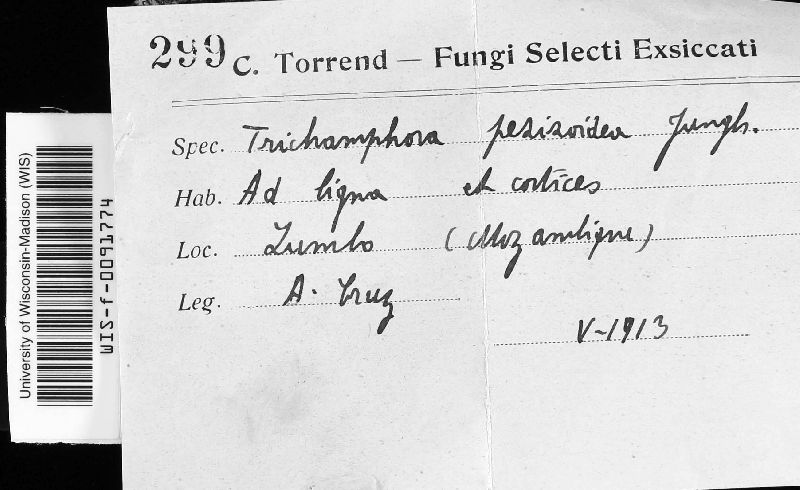 299 C. Torrend — Fungi Selecti Exsiccati
Spec. Trichamphora pezizoidea Jungh.
Hab. Ad ligna et cortices
Loc. Lumbo (Mozambique)
Leg. A. Cruz
V-1913
University of Wisconsin-Madison (WIS)
WIS-f-0091774